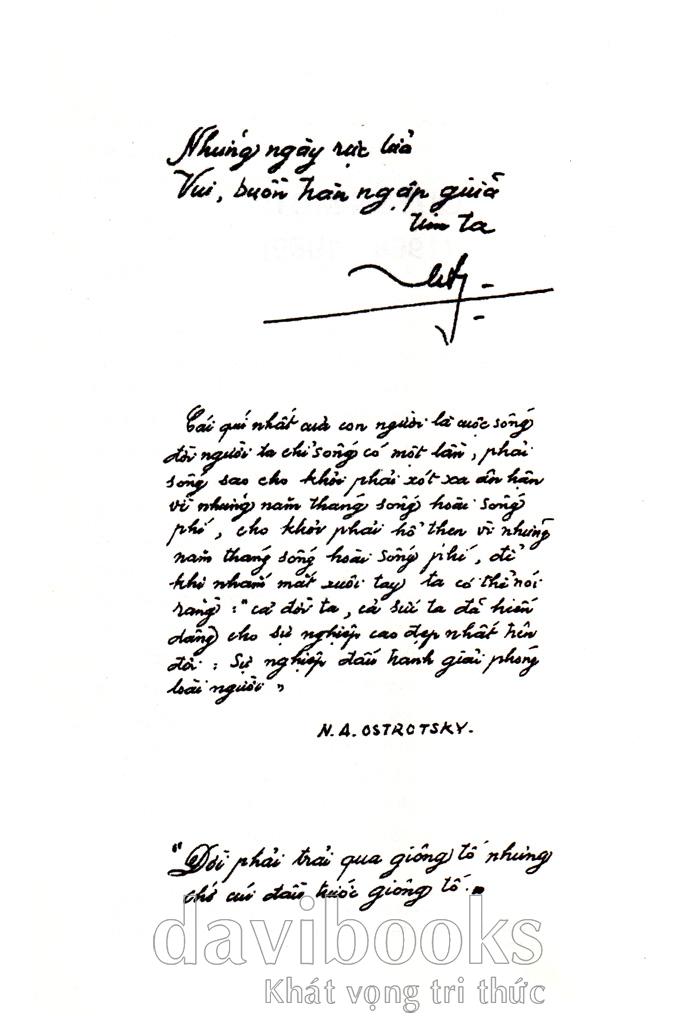 Những ngày rực lửa
Vui, buồn tràn ngập giữa
tim ta
Cái quí nhất của con người là cuộc sống
đời người ta chỉ sống có một lần, phải
sống sao cho khỏi phải xót xa ân hận
vì những năm tháng sống hoài sống
phí, cho khỏi phải hổ thẹn vì những
năm tháng sống hoài sống phí, để
khi nhắm mắt xuôi tay ta có thể nói
rằng: "cả đời ta, cả sức ta đã hiến
dâng cho sự nghiệp cao đẹp nhất trên
đời: Sự nghiệp đấu tranh giải phóng
loài người"
N.A. OSTROTSKY.
"Đời phải trải qua giông tố nhưng
chớ cúi đầu trước giông tố."
davibooks
Khát vọng tri thức